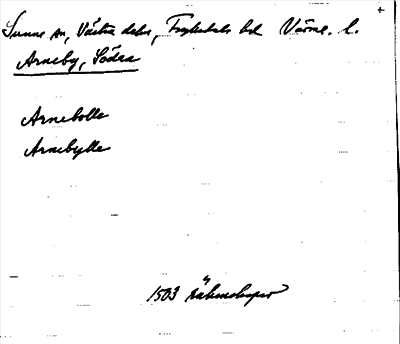 Sunne sn, Västra delen, Fryksdals hd Värml. l.
Arneby, Södra
Arnebolle
Arnebylle
1503 räkenskaper